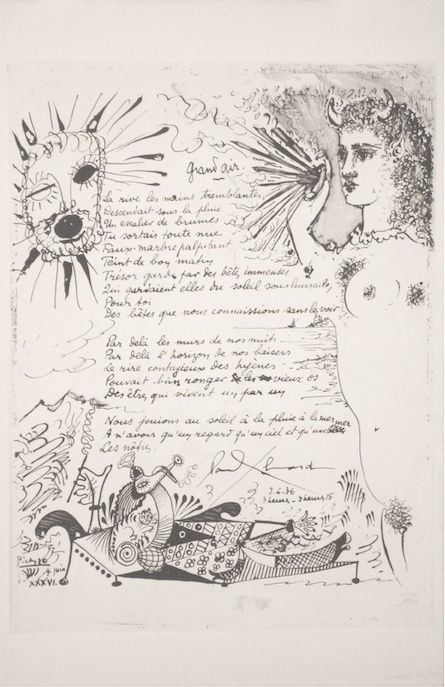 Grand air
La rive les mains tremblantes
Descendait sous la pluie
Un escalier de brumes
Tu sortais toute nue
Faux marbre palpitant
Teint de bon matin
Trésor gardé par des bêtes immenses
Qui gardaient elles du soleil sous leurs ailes
Pour toi
Des bêtes que nous connaissions sans les voir
Par delà les murs de nos nuits
Par delà l'horizon de nos baisers
Le rire contagieux des hyènes
Pouvait bien ronger les vieux os
Des êtres qui vivent un par un
Nous jouions au soleil à la pluie à la mer
A n'avoir qu'un regard qu'un ciel et qu'une mer
Les nôtres.
Paul Eluard
3.6.36
3 heures - 3 heures 15
4 juin
XXXVI.